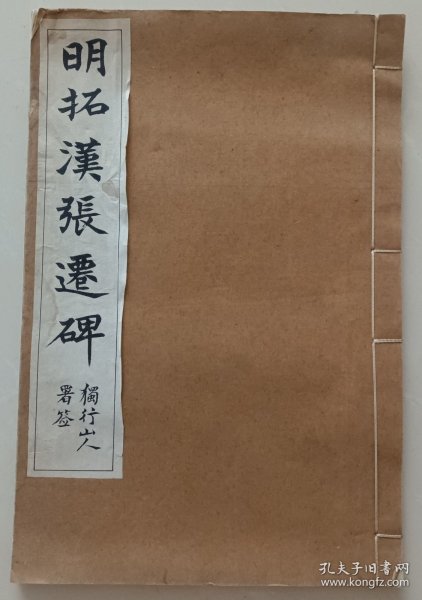 明拓漢張遷碑
獨行山人
署簽
孔夫子旧书网
www.kongfz.com